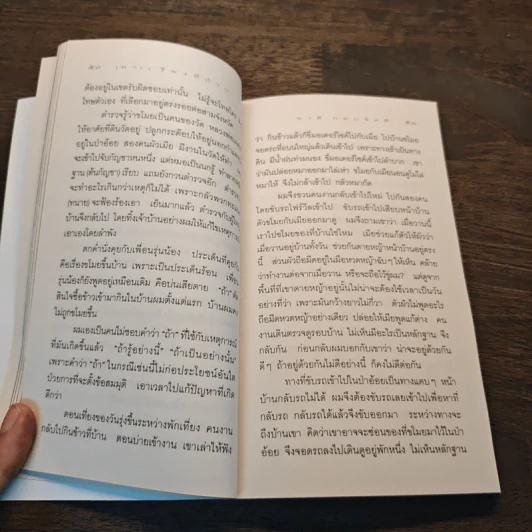 ต้องอยู่ในเขตรับผิดชอบเท่านั้น ไม่รู้จะโทษใคร
โทษตัวเอง ที่เลือกมาอยู่ตรงรอยต่อสามจังหวัด
ตำรวจรู้ว่าขโมยเป็นคนของวัด
ให้อาศัยที่ดินวัดอยู่ ปลูกกระต๊อบให้อยู่นอก
อยู่ในป่าอ้อย สองคนผัวเมีย มีงานในวัดให้ทำ
จะเข้าไปจับก็ปัญหาหนหนึ่ง แต่หมอเป็นนกรู้
ฐาน (ต้นกัญชา) เรียบ แถมยังกวนตำรวจอีก
จะทำอะไรเกินกว่าเหตุก็ไม่ได้ เพราะกลัวพวก
(ทนาย) จะฟ้องร้องเอา เย็นมากแล้ว ตำรวจกับผู้ใหญ่
บ้านจึงกลับไป โดยทิ้งเจ้าบ้านอย่างผมให้แก้ไขเหตุการณ์
เอาเองโดยลำพัง
ตกค่ำนั่งคุยกับเพื่อนรุ่นน้อง ประเด็นที่คุยกัน
คือเรื่องขโมยขึ้นบ้าน เพราะเป็นประเด็นร้อน เพื่อน
รุ่นน้องก็ยังพูดอยู่เหมือนเดิม คือบ่นเสียดาย "ถ้า"
สินใจซื้อข้าวเข้ามากินในบ้านผมตั้งแต่แรก บ้านผมคง
ไม่ถูกขโมยขึ้น
ผมเองเป็นคนไม่ชอบคำว่า "ถ้า" ที่ใช้กับเหตุการณ์
ที่มันเกิดขึ้นแล้ว "ถ้ารู้อย่างนี้" "ถ้าเป็นอย่างนั้น"
เพราะคำว่า "ถ้า" ในกรณีเช่นนี้ไม่ก่อประโยชน์อันใด
ป่วยการที่จะตั้งข้อสมมุติ เอาเวลาไปแก้ปัญหาที่เกิด
ดีกว่า
ตอนเที่ยงของวันรุ่งขึ้นระหว่างพักเที่ยง คนงาน
กลับไปกินข้าวที่บ้าน ตอนบ่ายเข้างาน เขาเล่าให้ฟัง
ว่า กินข้าวแล้วก็ขี่มอเตอร์ไซค์ไปกับเมีย ไปบ้านขโมย
จอดรถที่ถนนใหญ่แล้วเดินเข้าไป เพราะทางเข้าเป็นทาง
ดิน มีน้ำฝนท่วมนอง ขี่มอเตอร์ไซค์เข้าไปลำบาก เขา
ว่ามันปล่อยหมาออกมาไล่เห่า ขโมยกับเมียนอนดูไม่ไล่
หมาให้ จึงไม่กล้าเข้าไป กลัวหมากัด
ผมจึงชวนคนงานกลับเข้าไปใหม่ ไปกันสองคน
โดยขับรถโฟร์วีลเข้าไป ขับรถเข้าไปเสียบหน้าบ้าน
ตัวขโมยกับเมียออกมาดู ผมจึงถามเขาว่า เมื่อวานนี้
เราไปขโมยของที่บ้านใช่ไหม เมียช่วยแก้ตัวให้ผัวว่า
เมื่อวานอยู่บ้านทั้งวัน ช่วยกันดายหญ้าหน้าบ้านอยู่ตรง
นี้ ส่วนผัวถือมีดอยู่ในมือหวดหญ้าฉับๆ ให้เห็น คล้าย
ว่าทำงานต่อจากเมื่อวาน หรือจะถือไว้ขู่ผม? แต่ดูจาก
พื้นที่ที่เขาดายหญ้าอยู่นั้นไม่น่าจะต้องใช้เวลาเป็นวัน
อย่างที่ว่า เพราะมันกว้างยาวไม่กี่วา ตัวผัวไม่พูดอะไร
ถือมีดหวดหญ้าอย่างเดียว ปล่อยให้เมียพูดแก้ต่าง คน
งานเดินตรวจดูรอบบ้าน ไม่เห็นมีอะไรเป็นหลักฐาน จึง
กลับกัน ก่อนกลับผมบอกกับเขาว่า น่าจะอยู่ด้วยกัน
ดีๆ ถ้าอยู่ด้วยกันไม่ดีอย่างนี้ ก็คงไม่ดีต่อกัน
ทางที่ขับรถเข้าไปในป่าอ้อยเป็นทางแคบๆ หน้า
บ้านกลับรถไม่ได้ ผมจึงต้องขับรถเลยเข้าไปเพื่อหาที่
กลับรถ กลับรถได้แล้วจึงขับออกมา ระหว่างทางจะ
ถึงบ้านเขา คิดว่าเขาอาจจะซ่อนของที่ขโมยมาไว้ในป่า
อ้อย จึงจอดรถลงไปเดินดูอยู่พักหนึ่ง ไม่เห็นหลักฐาน